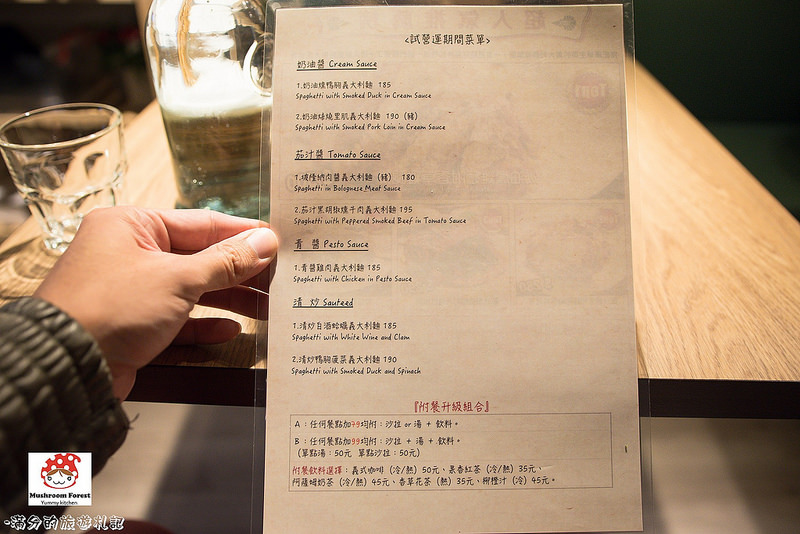 <試營運期間菜單>
奶油醬 Cream Sauce
1.奶油燻鴨胸義大利麵 185
Spaghetti with Smoked Duck in Cream Sauce
2.奶油炙燒里肌義大利麵 190 (豬)
Spaghetti with Smoked Pork Loin in Cream Sauce
茄汁醬 Tomato Sauce
1.坡隆納肉醬義大利麵 (豬) 180
Spaghetti in Bolognese Meat Sauce
2.茄汁黑胡椒燻牛肉義大利麵 195
Spaghetti with Peppered Smoked Beef in Tomato Sauce
青 醬 Pesto Sauce
1.青醬雞肉義大利麵 185
Spaghetti with Chicken in Pesto Sauce
清 炒 Sauteed
1.清炒白酒蛤蠣義大利麵 185
Spaghetti with White Wine and Clam
2.清炒鴨胸菠菜義大利麵 190
Spaghetti with Smoked Duck and Spinach
『附餐升級組合』
A：任何餐點加79均附：沙拉 or 湯 + 飲料。
B：任何餐點加99均附：沙拉 + 湯 + 飲料。
(單點湯：50元 單點沙拉：50元)
附餐飲料選擇：義式咖啡 (冷/熱) 50元、果香紅茶 (冷/熱) 35元、
阿薩姆奶茶 (冷/熱) 45元、香草花茶 (熱) 35元、柳橙汁 (冷) 45元。
Mushroom Forest
Yummy kitchen
-滿分的旅遊札記